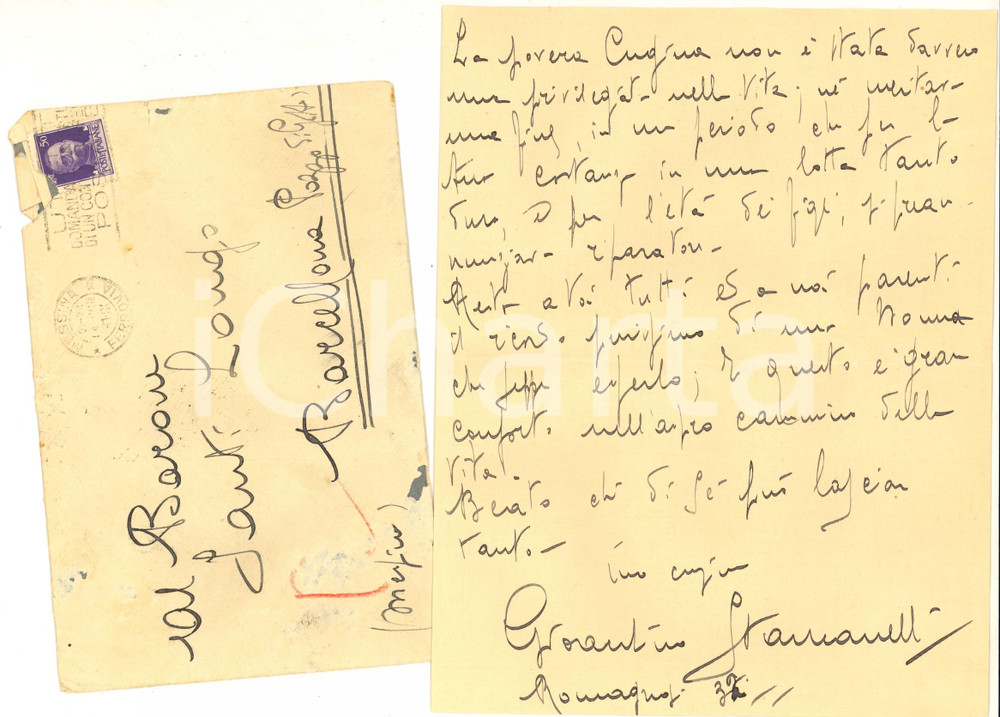 al Barone
Santi Longo
Barcellona Pozzo di Gotto
(Messina)
50
POSTE ITALIANE
MESSINA
FERROVIA
La povera Cugina non è stata davvero
una privilegiata nella vita; né meritava
una fine, in un periodo che fu la
sua costanza in una lotta tanto
dura, e per l'età dei figli, si preannunziava
riparatore.
Resta a voi tutti ed a noi parenti
il ricordo purissimo di una Donna
che seppe esserlo; E questo è gran
conforto nell'aspro cammino della
vita.
Beato chi di sé può lasciar
tanto -
tuo cugino
Stammanelli
Romagnosi
iCharta